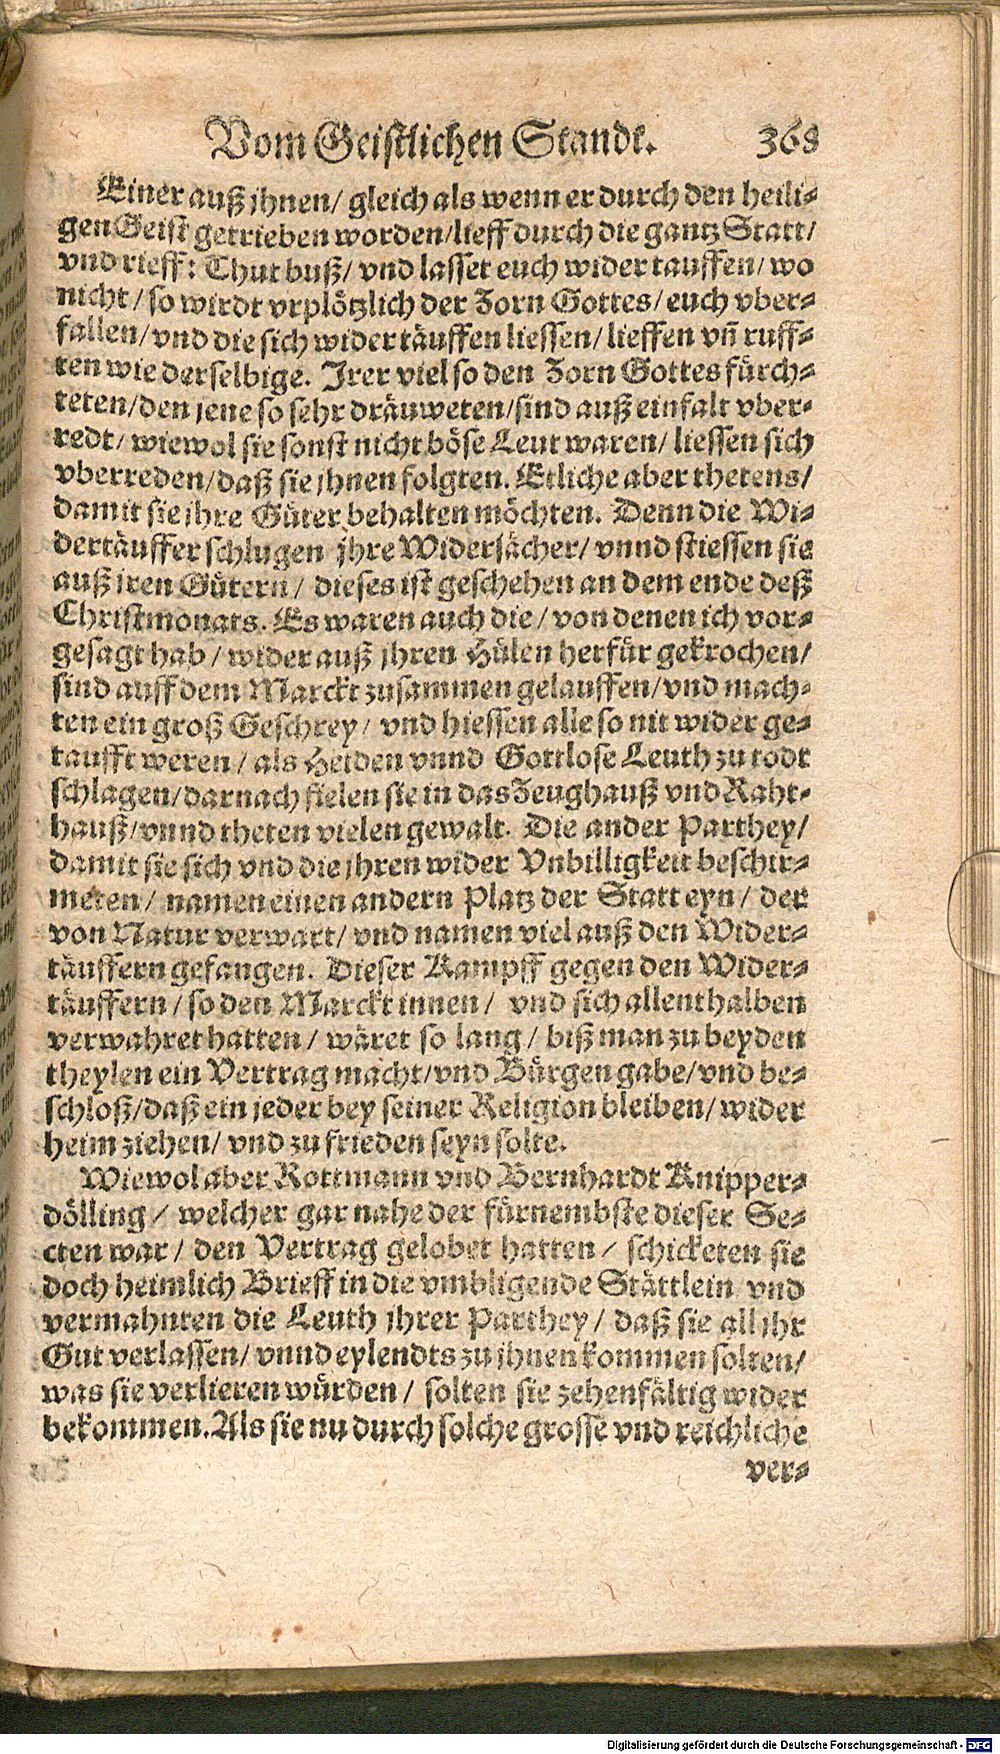 Vom Geistlichen Standt. 368
Einer auß jhnen/ gleich als wenn er durch den heili⸗
gen Geist getrieben worden/lieff durch die gantz Statt/
vnd rieff: Thut buß/ vnd lasset euch wider tauffen/ wo
nicht/ so wirdt vrplötzlich der Zorn Gottes/ euch vber⸗
fallen/ vnd die sich wider täuffen liessen/ lieffen vñ ruff⸗
ten wie derselbige. Irer viel so den Zorn Gottes fürch⸗
teten/den jene so sehr dräuweten/sind auß einfalt vber⸗
redt/ wiewol sie sonst nicht böse Leut waren/ liessen sich
vberreden/daß sie jhnen folgten. Etliche aber thetens/
damit sie jhre Güter behalten möchten. Denn die Wi⸗
dertäuffer schlugen jhre Widersächer/ vnnd stiessen sie
auß iren Gütern/ dieses ist geschehen an dem ende deß
Christmonats. Es waren auch die/ von denen ich vor⸗
gesagt hab/ wider auß jhren Hülen herfür gekrochen/
sind auff dem Marckt zusammen gelauffen/vnd mach⸗
ten ein groß Geschrey/ vnd hiessen alle so nit wider ge⸗
taufft weren/ als Heiden vnnd Gottlose Leuth zu todt
schlagen/darnach fielen sie in das Zeughauß vnd Raht⸗
hauß/vnnd theten vielen gewalt. Die ander Parthey/
damit sie sich vnd die jhren wider Vnbilligkeit beschir⸗
meten/ namen einen andern Platz der Statt eyn/ der
von Natur verwart/ vnd namen viel auß den Wider⸗
täuffern gefangen. Dieser Kampff gegen den Wider⸗
täuffern/so den Marckt innen/ vnd sich allenthalben
verwahret hatten/ wäret so lang/ biß man zu beyden
theylen ein Vertrag macht/vnd Bürgen gabe/vnd be⸗
schloß/daß ein jeder bey seiner Religion bleiben/ wider
heim ziehen/ vnd zu frieden seyn solte.
Wiewol aber Rottmann vnd Bernhardt Knipper⸗
dölling/ welcher gar nahe der fürnembste dieser Se⸗
cten war/ den Vertrag gelobet hatten/ schicketen sie
doch heimlich Brieff in die vmbligende Stättlein vnd
vermahnten die Leuth jhrer Parthey/ daß sie all jhr
Gut verlassen/ vnnd eylendts zu jhnen kommen solten/
was sie verlieren würden/ solten sie zehenfältig wider
bekommen. Als sie nu durch solche grosse vnd reichliche
ver⸗
Digitalisierung gefördert durch die Deutsche Forschungsgemeinschaft - DFG